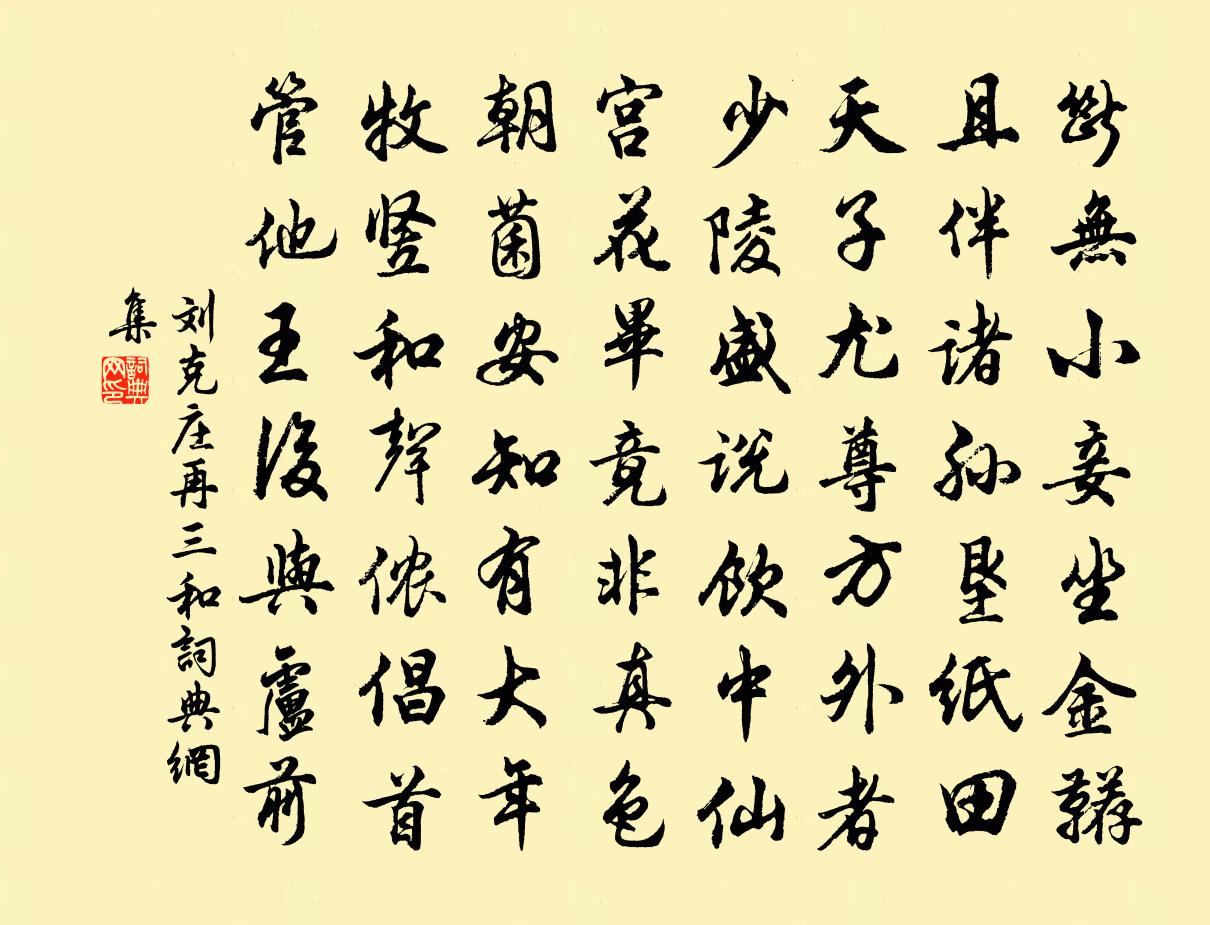 断無小妾坐金鞯
且伴诸孙垦纸田
天子尤尊方外者
少陵盛说飲中仙
宫花畢竟非真色
朝菌安知有大年
牧竖和聲侬倡首
管他王後與盧前
刘克庄再三和詞典網
集
詞典網印